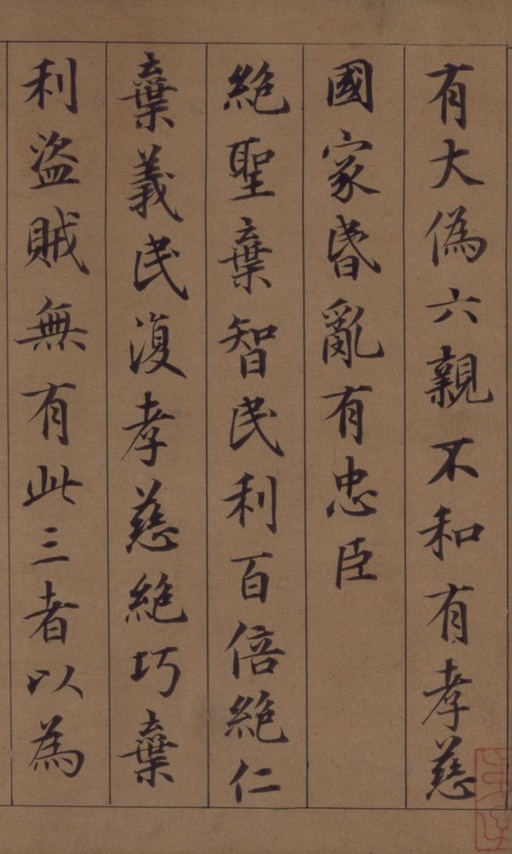 有大偽六親不和有孝慈
國家昬亂有忠臣
絕聖棄智民利百倍絕仁
棄義民復孝慈絕巧棄
利盜賊無有此三者以為